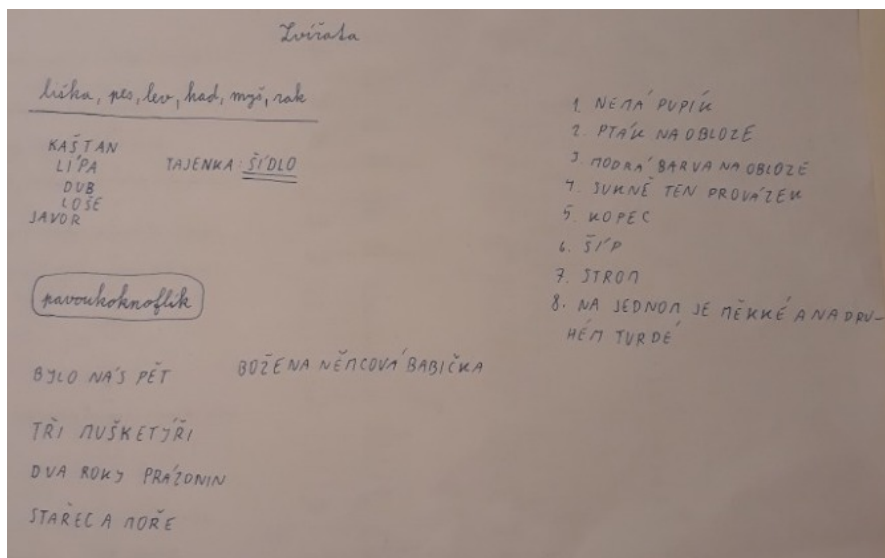 Zvířata
liška, pes, lev, had, myš, rak
KAŠTAN
LÍPA
DUB
LOŠE
JAVOR
TAJENKA: ŠÍDLO
pavoukoknoflík
BYLO NÁS PĚT
BOŽENA NĚMCOVÁ BABIČKA
TŘI MUŠKETÝŘI
DVA ROKY PRÁZDNIN
STAŘEC A MOŘE
1. NEMÁ PUPÍK
2. PTÁK NA OBLOZE
3. MODRÁ BARVA NA OBLOZE
4. SUKNĚ TEN PROVÁZEK
5. KOPEC
6. ŠÍP
7. STROM
8. NA JEDNOM JE MĚKKÉ A NA DRU-
HÉM TVRDÉ